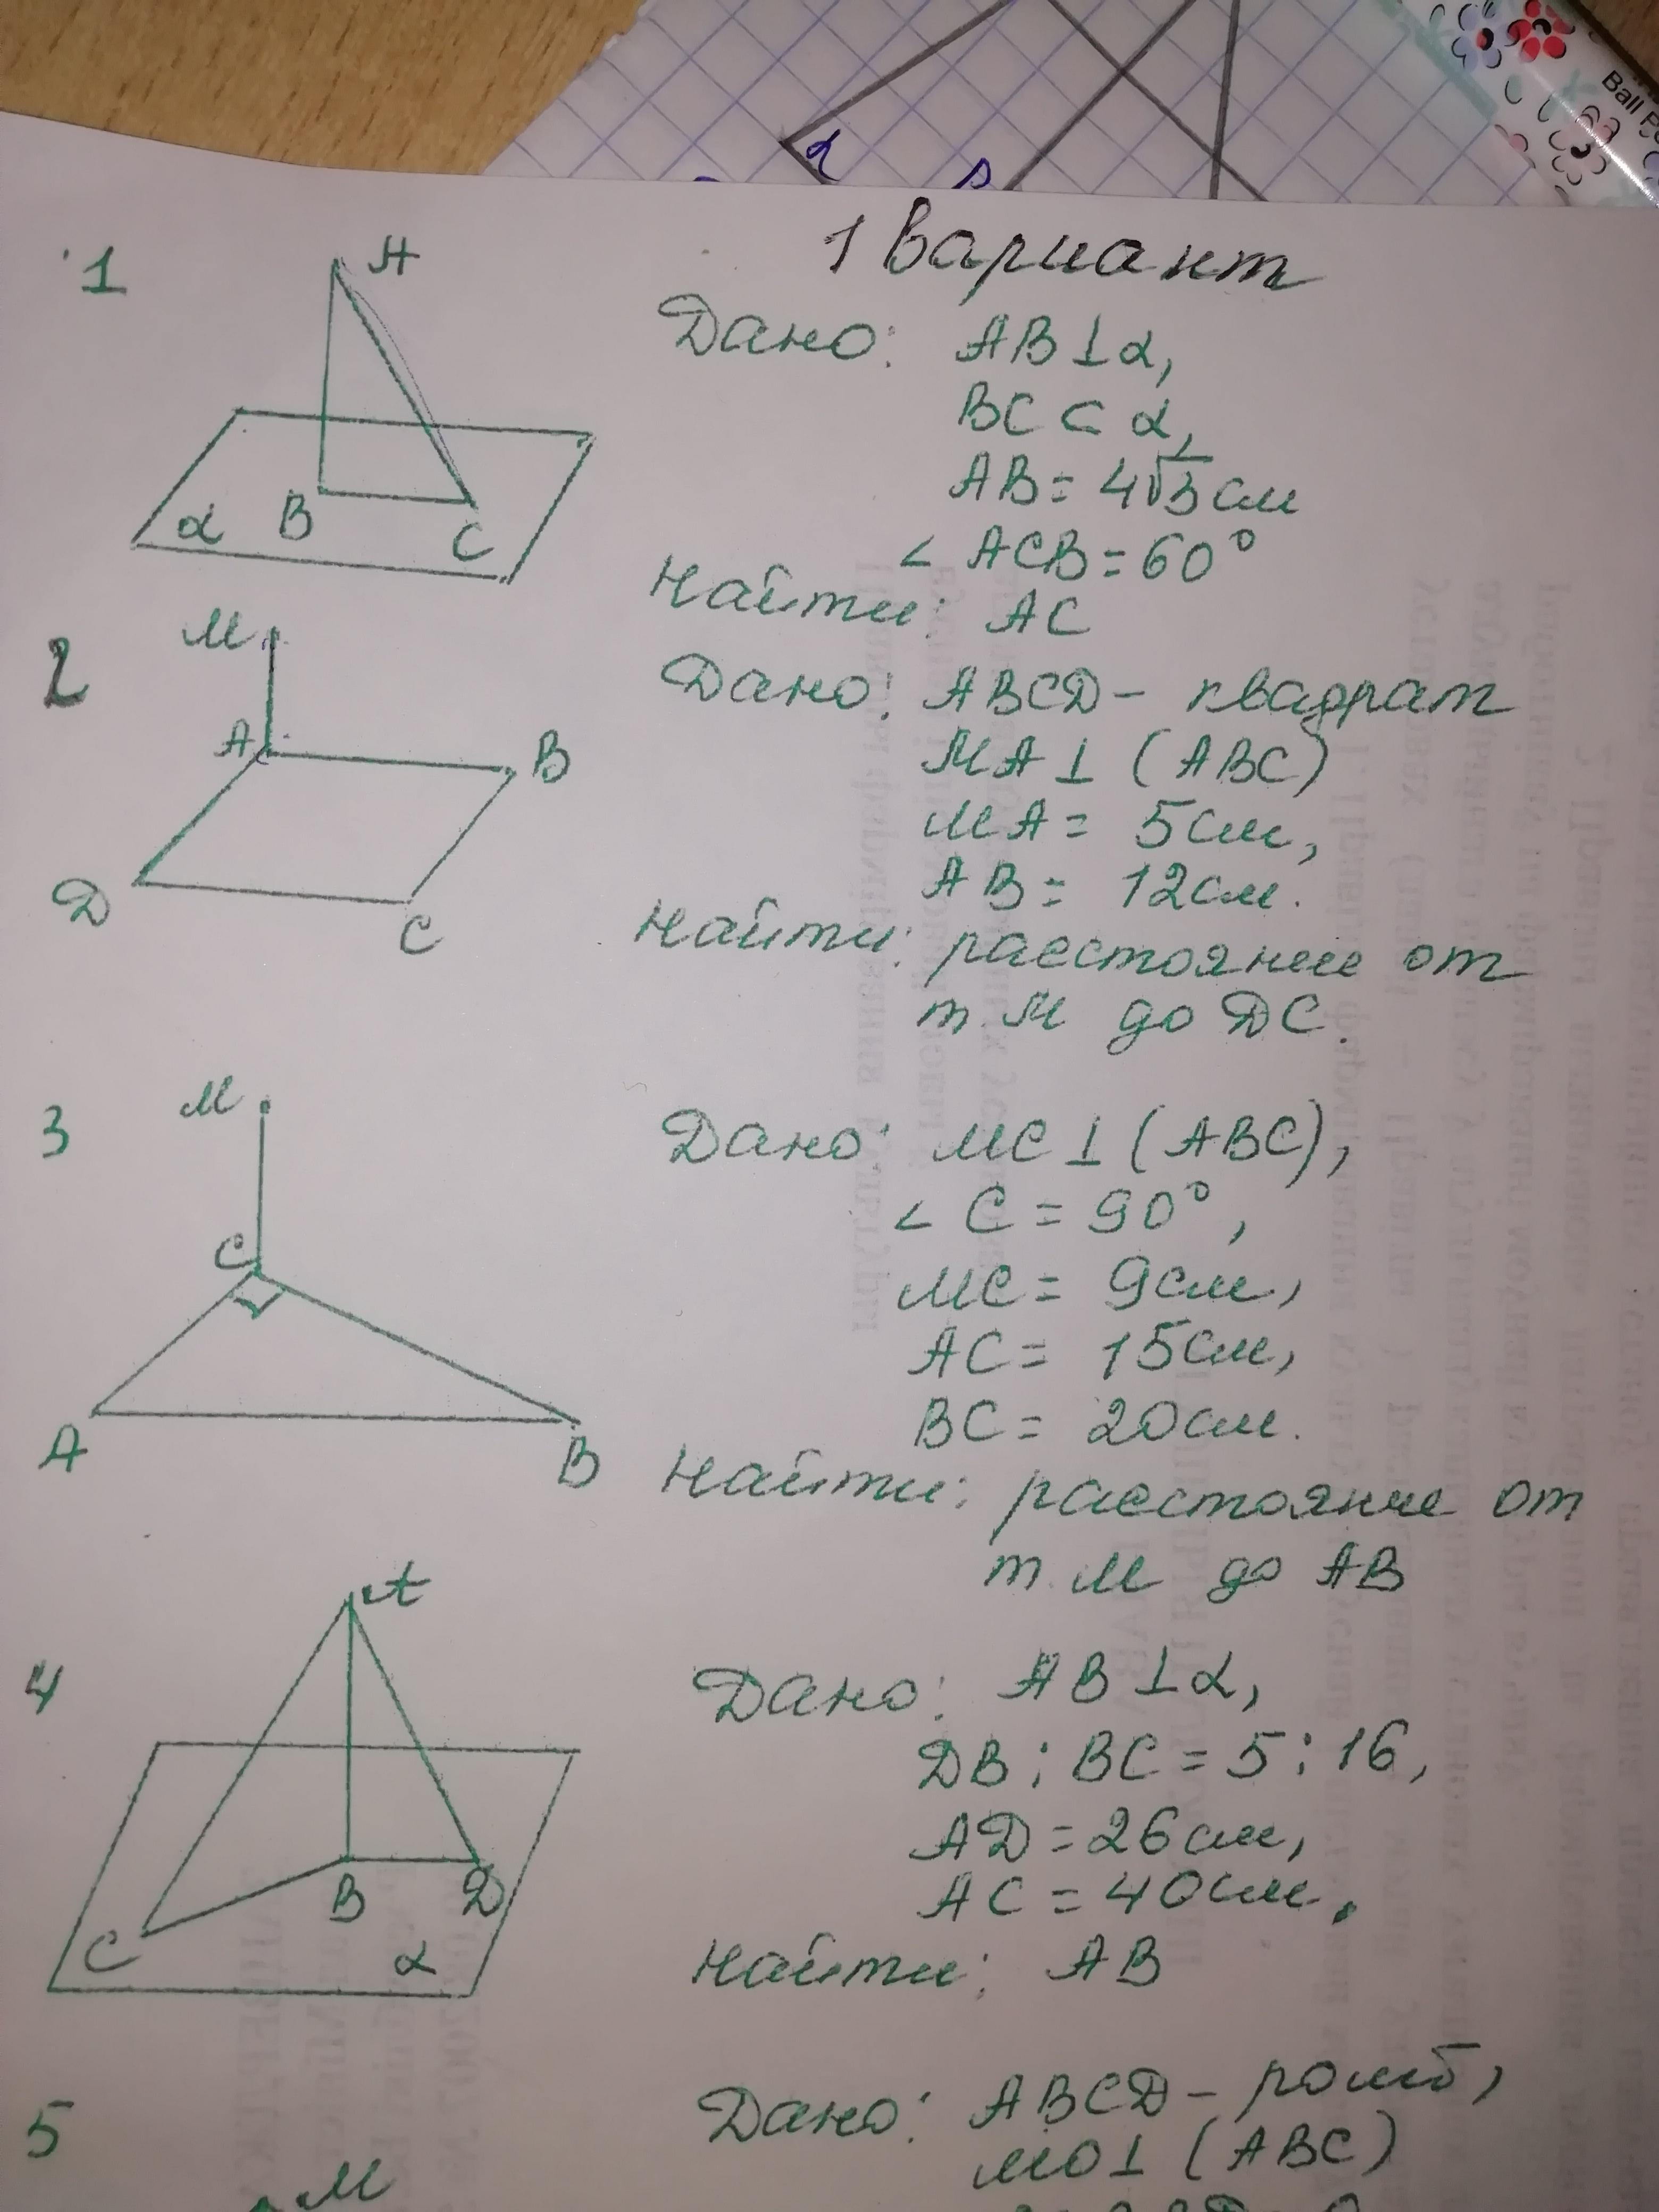 Ball P
α
1 Вариант
1
A
B
C
α
Дано: AB ⊥ α,
BC ⊂ α,
AB = 4√3 см
∠ ACB = 60°
Найти: AC
2
M
A
B
D
C
Дано: ABCD – квадрат
MA ⊥ (ABC)
MA = 5см,
AB = 12см.
Найти: расстояние от
т. M до DC.
3
M
C
A
B
Дано: MC ⊥ (ABC),
∠ C = 90°,
MC = 9см,
AC = 15см,
BC = 20см.
Найти: расстояние от
т. M до AB
4
A
B
D
C
α
Дано: AB ⊥ α,
DB : BC = 5 : 16,
AD = 26см,
AC = 40см.
Найти: AB
5
M
Дано: ABCD – ромб,
MO ⊥ (ABC)